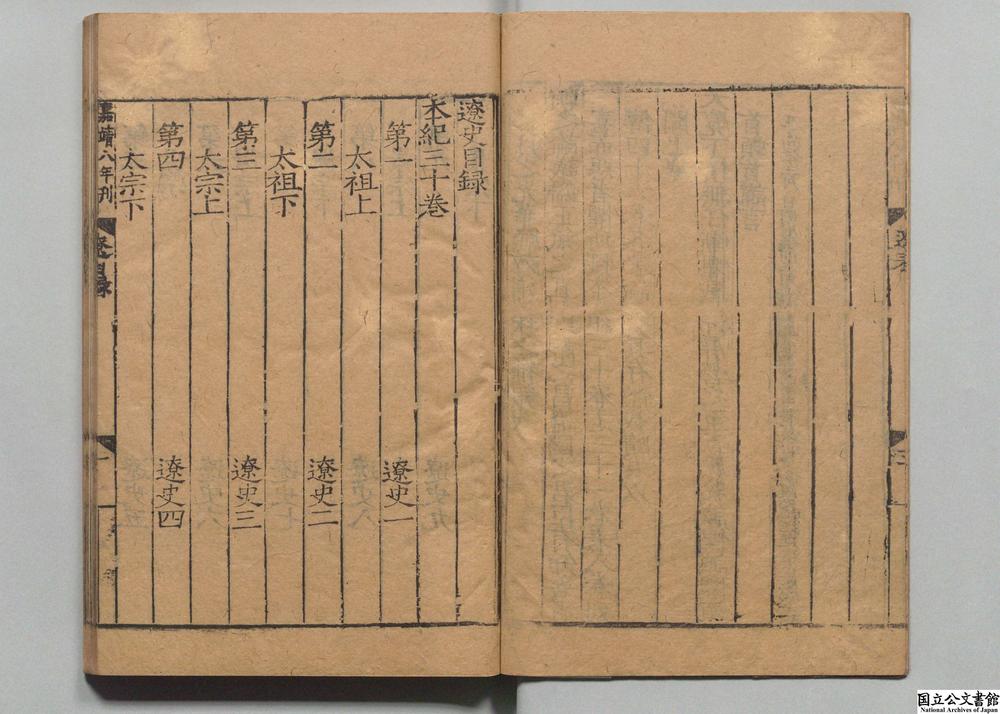 遼史目録
本紀三十巻
第一 遼史一
太祖上
第二 遼史二
太祖下
第三 遼史三
太宗上
第四 遼史四
太宗下
嘉靖八年刋
遼目録
一
国立公文書館
National Archives of Japan